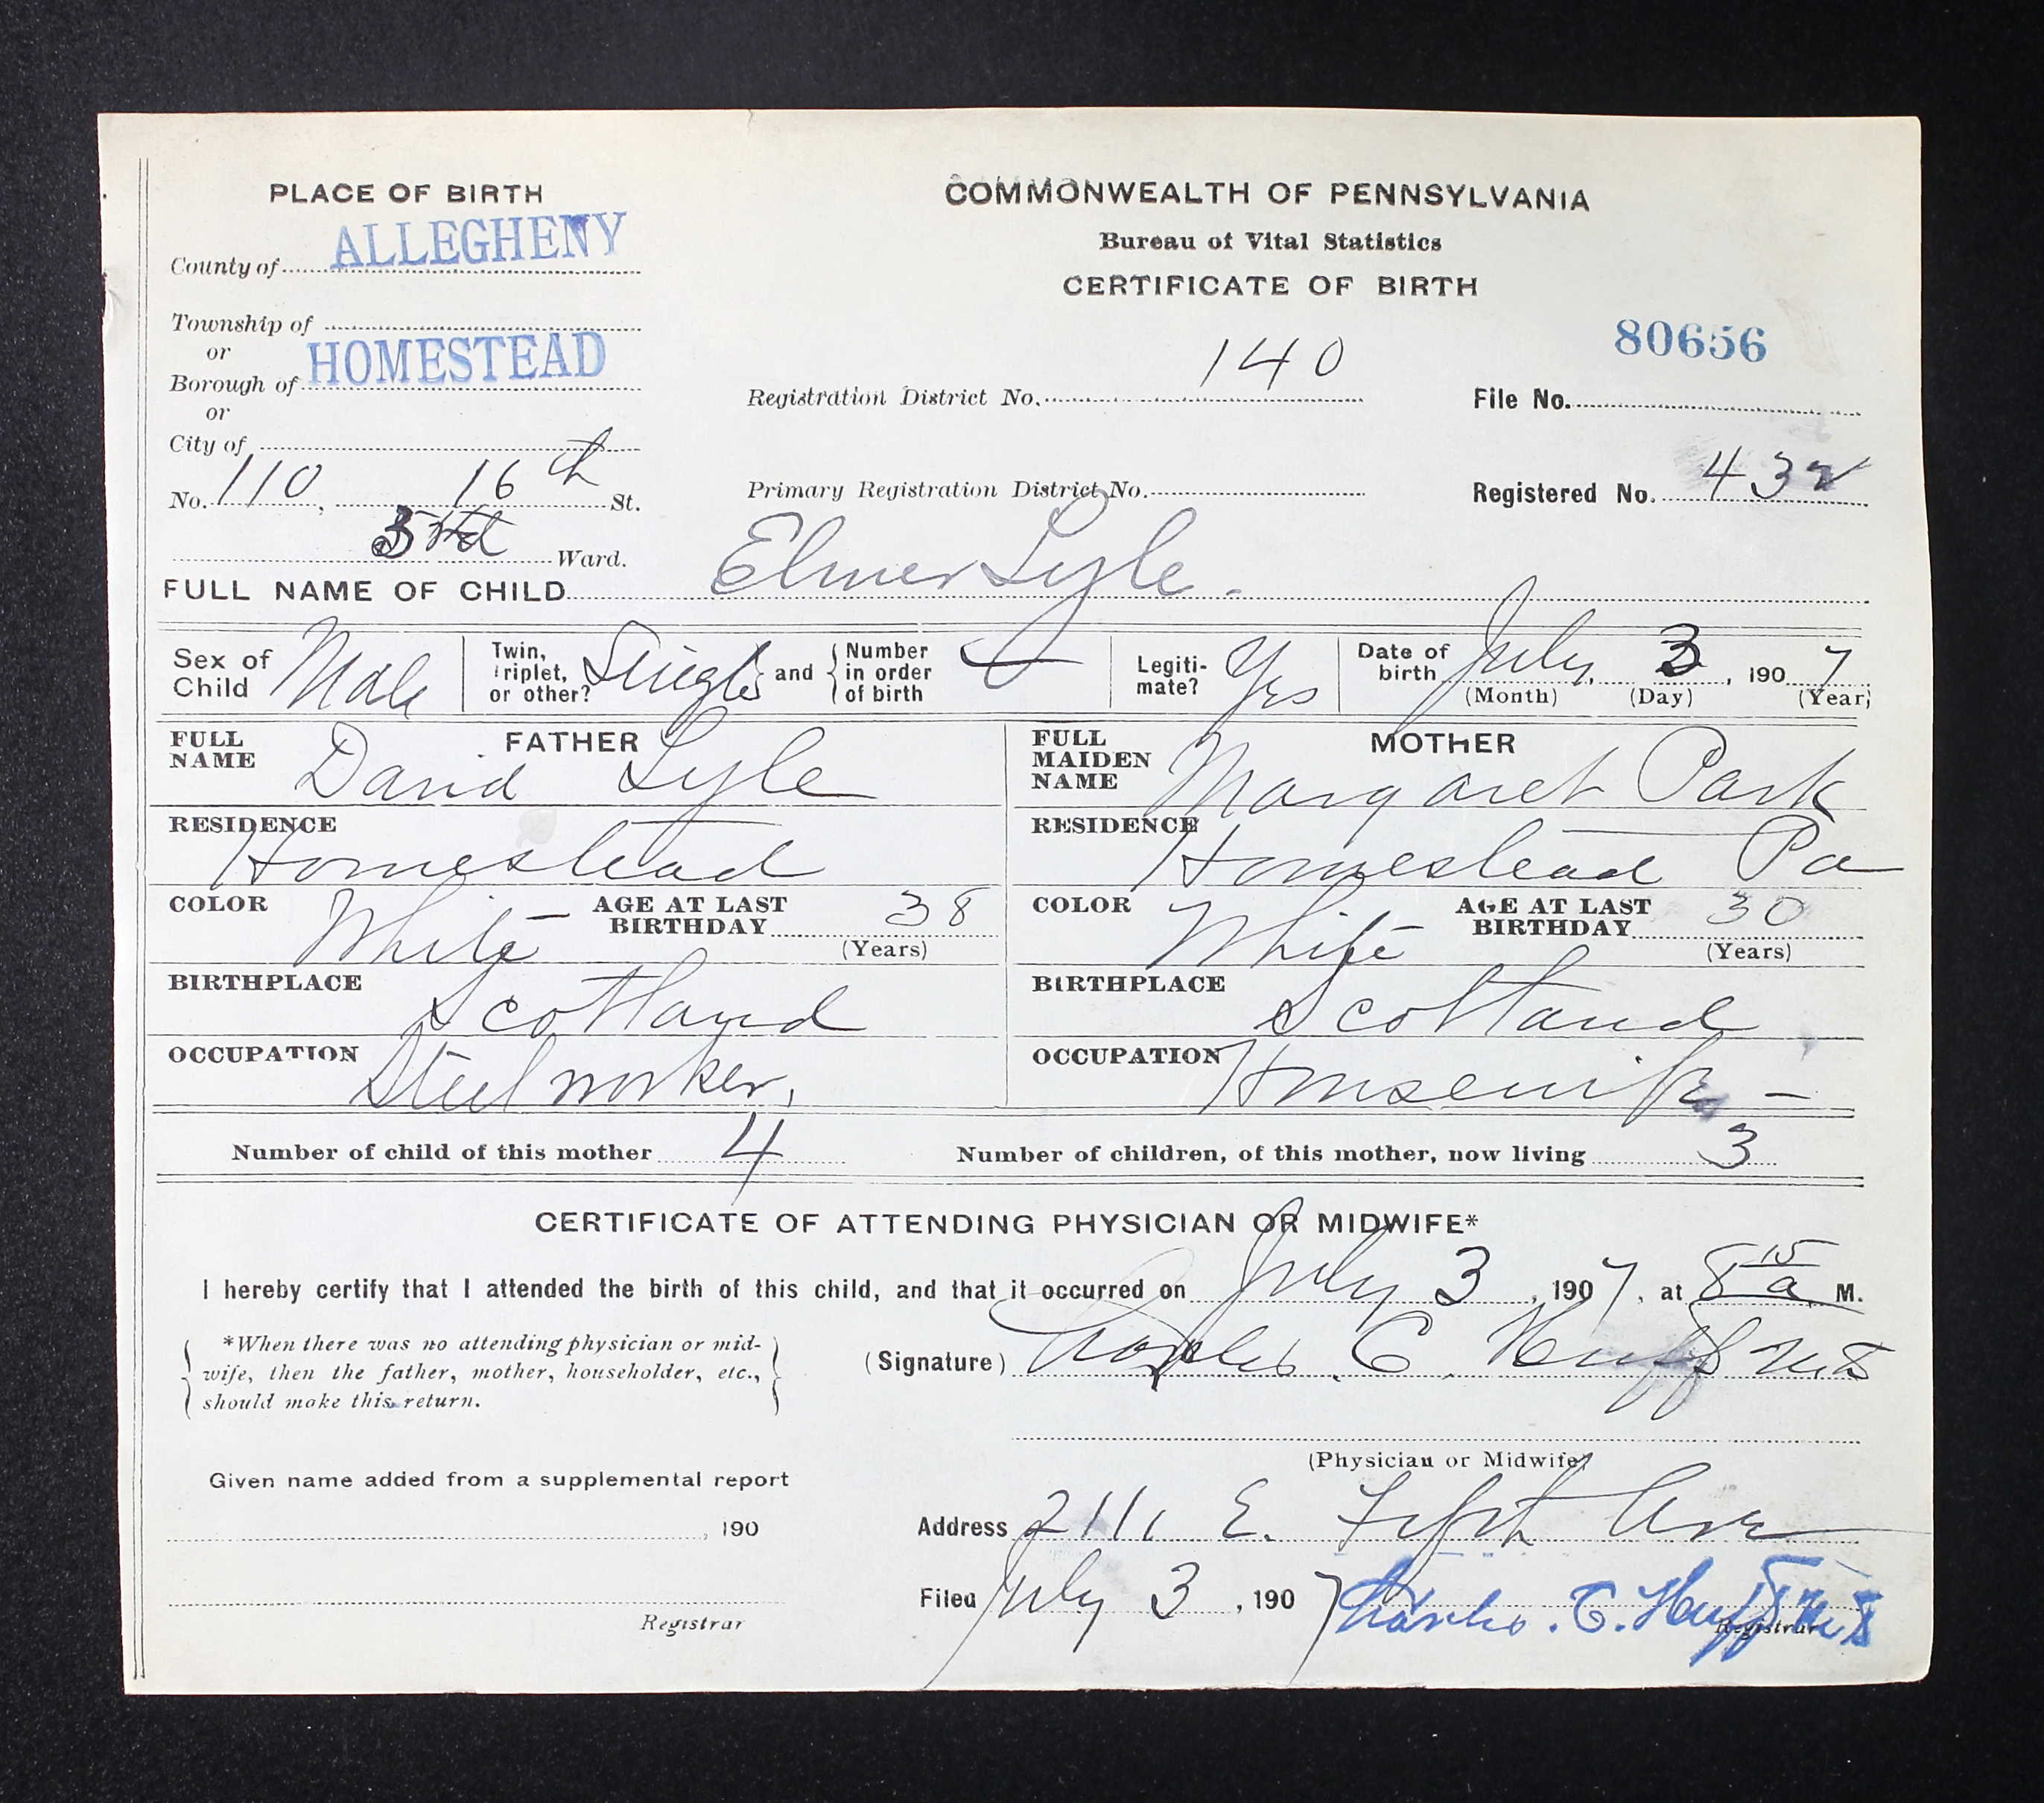 PLACE OF BIRTH
County of ALLEGHENY
Township of
or
Borough of HOMESTEAD
or
City of
No. 110, 16th St.
Ward.
COMMONWEALTH OF PENNSYLVANIA
Bureau of Vital Statistics
CERTIFICATE OF BIRTH
80656
Registration District No. 140
File No.
Primary Registration District No.
Registered No. 432
FULL NAME OF CHILD Elmer Lyle.
Sex of Child Male
Twin, triplet, or other? Single and Number in order of birth
Legitimate? Yes
Date of birth July, 3, 1907
(Month) (Day) (Year)
FATHER
FULL NAME David Lyle
RESIDENCE Homestead
COLOR White - AGE AT LAST BIRTHDAY 38
(Years)
BIRTHPLACE Scotland
OCCUPATION Steel worker,
MOTHER
FULL MAIDEN NAME Margaret Park
RESIDENCE Homestead Pa
COLOR White AGE AT LAST BIRTHDAY 30
(Years)
BIRTHPLACE Scotland
OCCUPATION Housewife -
Number of child of this mother 4 Number of children, of this mother, now living 3
CERTIFICATE OF ATTENDING PHYSICIAN OR MIDWIFE*
I hereby certify that I attended the birth of this child, and that it occurred on July 3, 1907, at 8 15 a M.
*When there was no attending physician or mid-
wife, then the father, mother, householder, etc.,
should make this return.
(Signature) Charles C. Huff M.D
(Physician or Midwife)
Given name added from a supplemental report
, 190
Registrar
Address E. Fifth Ave
Filed July 3, 1907 Charles. C. Huff M.D
Registrar